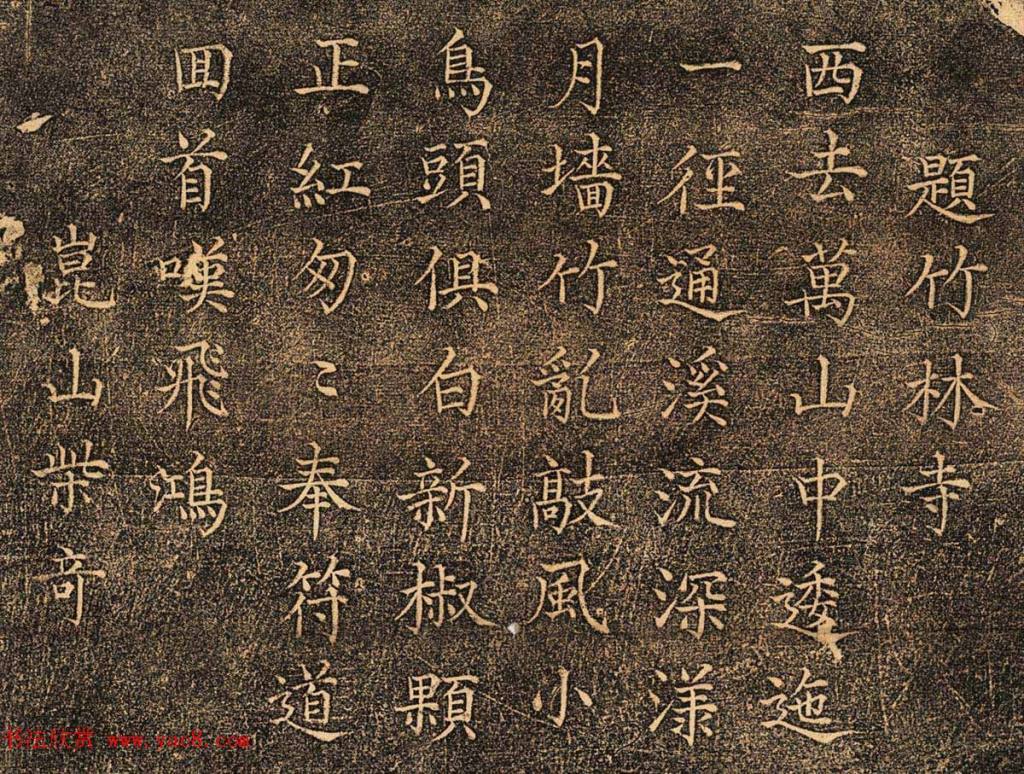 題竹林寺
西去萬山中透迤
一徑通溪流深漾
月墻竹亂敲風小
鳥頭俱白新椒顆
正紅匆〻奉符道
囬首嘆飛鴻
崑山柴奇
书法欣赏 www.yac8.com